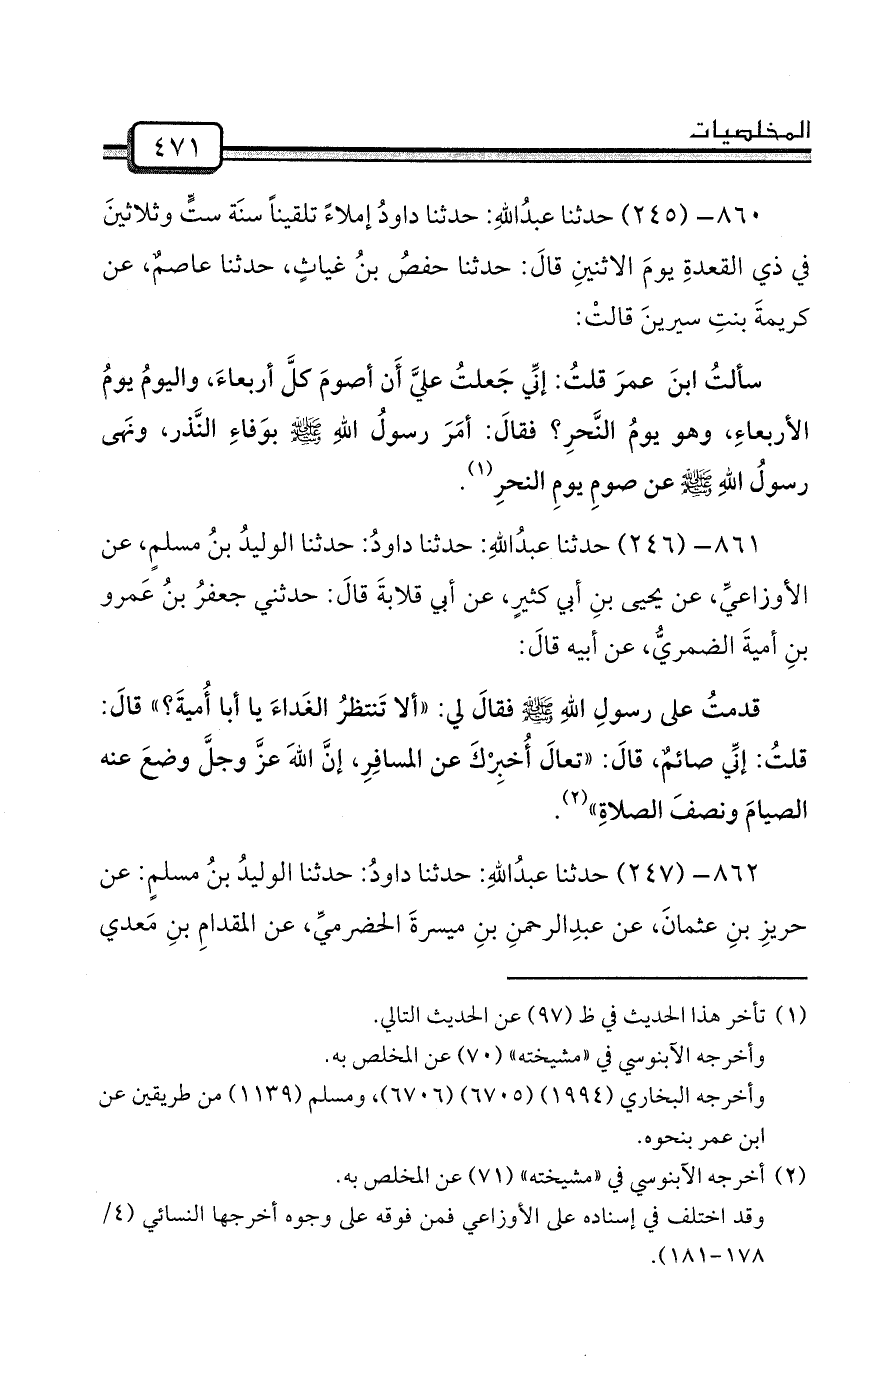 المخلصيات
٤٧١
٨٦٠- (٢٤٥) حدثنا عبدُاللهِ: حدثنا داودُ إملاءً تلقيناً سنَة ستٍّ وثلاثينَ
في ذي القعدةِ يومَ الاثنينِ قالَ: حدثنا حفصُ بنُ غياثٍ، حدثنا عاصمٌ، عن
كريمةَ بنتِ سيرينَ قالتْ:
سألتُ ابنَ عمرَ قلتُ: إنِّي جَعلتُ عليَّ أَن أصومَ كلَّ أربعاءَ، واليومُ يومُ
الأربعاءِ، وهو يومُ النَّحرِ؟ فقالَ: أمَرَ رسولُ اللهِ ﷺ بوَفاءِ النَّذر، ونَهى
رسولُ اللهِ ﷺ عن صومِ يومِ النحرِ(١).
٨٦١- (٢٤٦) حدثنا عبدُاللهِ: حدثنا داودُ: حدثنا الوليدُ بنُ مسلمٍ، عن
الأوزاعيِّ، عن يحيى بنِ أبي كثيرٍ، عن أبي قلابةَ قالَ: حدثني جعفرُ بنُ عَمرو
بنِ أميةَ الضمريُّ، عن أبيه قالَ:
قدمتُ على رسولِ اللهِ ﷺ فقالَ لي: «ألا تَنتظرُ الغَداءَ يا أبا أُميةَ؟» قالَ:
قلتُ: إنِّي صائمٌ، قالَ: «تعالَ أُخبِرْكَ عن المسافِرِ، إنَّ اللهَ عزَّ وجلَّ وضعَ عنه
الصيامَ ونصفَ الصلاةِ»(٢).
٨٦٢- (٢٤٧) حدثنا عبدُاللهِ: حدثنا داودُ: حدثنا الوليدُ بنُ مسلمٍ: عن
حريزِ بنِ عثمانَ، عن عبدِالرحمنِ بنِ ميسرةَ الحضرميِّ، عن المقدامِ بنِ مَعدي
(١) تأخر هذا الحديث في ظ (٩٧) عن الحديث التالي.
وأخرجه الآبنوسي في «مشيخته» (٧٠) عن المخلص به.
وأخرجه البخاري (١٩٩٤) (٦٧٠٥) (٦٧٠٦)، ومسلم (١١٣٩) من طريقين عن
ابن عمر بنحوه.
(٢) أخرجه الآبنوسي في «مشيخته» (٧١) عن المخلص به.
وقد اختلف في إسناده على الأوزاعي فمن فوقه على وجوه أخرجها النسائي (٤/
١٧٨-١٨١).